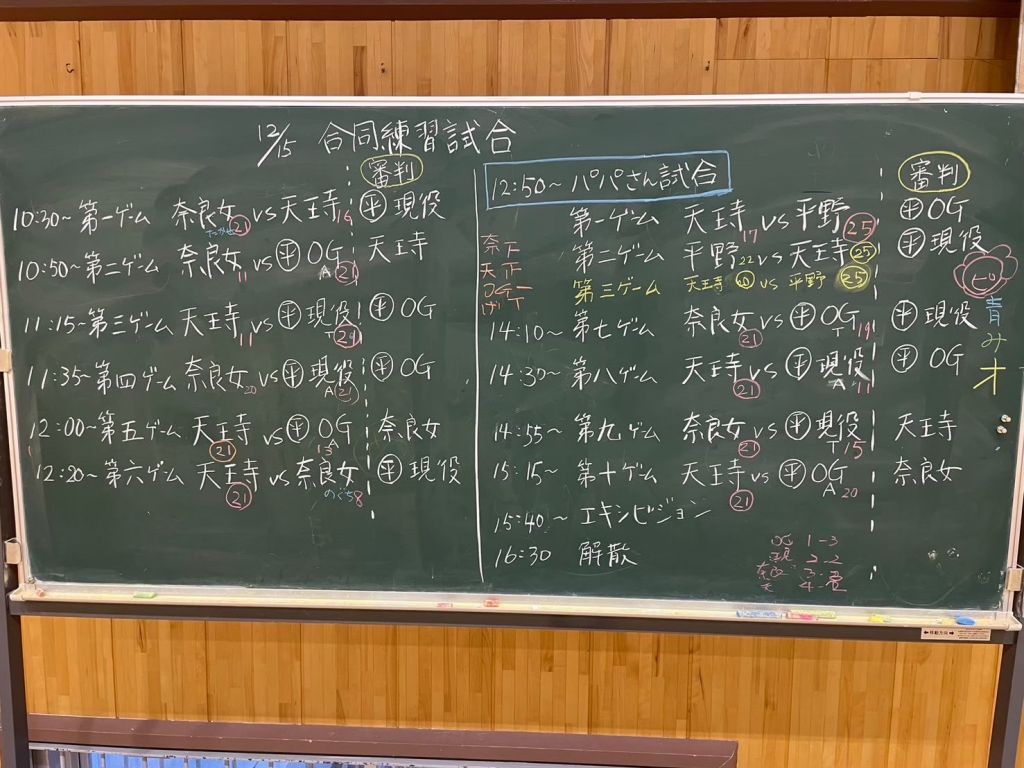 12/15 合同練習試合
審判
10:30~ 第一ゲーム 奈良女 ㉑ vs 天王寺 ㊥ 現役
10:50~ 第二ゲーム 奈良女 11 vs ㊥ OG A ㉑ 天王寺
11:15~ 第三ゲーム 天王寺 11 vs ㊥ 現役 T ㉑ ㊥ OG
11:35~ 第四ゲーム 奈良女 20 vs ㊥ 現役 A ㉑ ㊥ OG
12:00~ 第五ゲーム 天王寺 ㉑ vs ㊥ OG 13 奈良女
12:20~ 第六ゲーム 天王寺 ㉑ vs 奈良女 のぐち 8 ㊥ 現役
12:50~ パパさん試合
審判
第一ゲーム 天王寺 17 vs 平野 ㉕ ㊥ OG
第二ゲーム 平野 22 vs 天王寺 ㉕ ㊥ 現役
第三ゲーム 天王寺 vs 平野 ㉕
14:10~ 第七ゲーム 奈良女 ㉑ vs ㊥ OG T 19 ㊥ 現役
14:30~ 第八ゲーム 天王寺 ㉑ vs ㊥ 現役 A 11 ㊥ OG
14:55~ 第九ゲーム 奈良女 ㉑ vs ㊥ 現役 T 15 天王寺
15:15~ 第十ゲーム 天王寺 ㉑ vs ㊥ OG A 20 奈良女
15:40~ エキシビジョン
16:30 解散
OG 1-3
現 2-2
天 4-
青
み
オ
移動方向